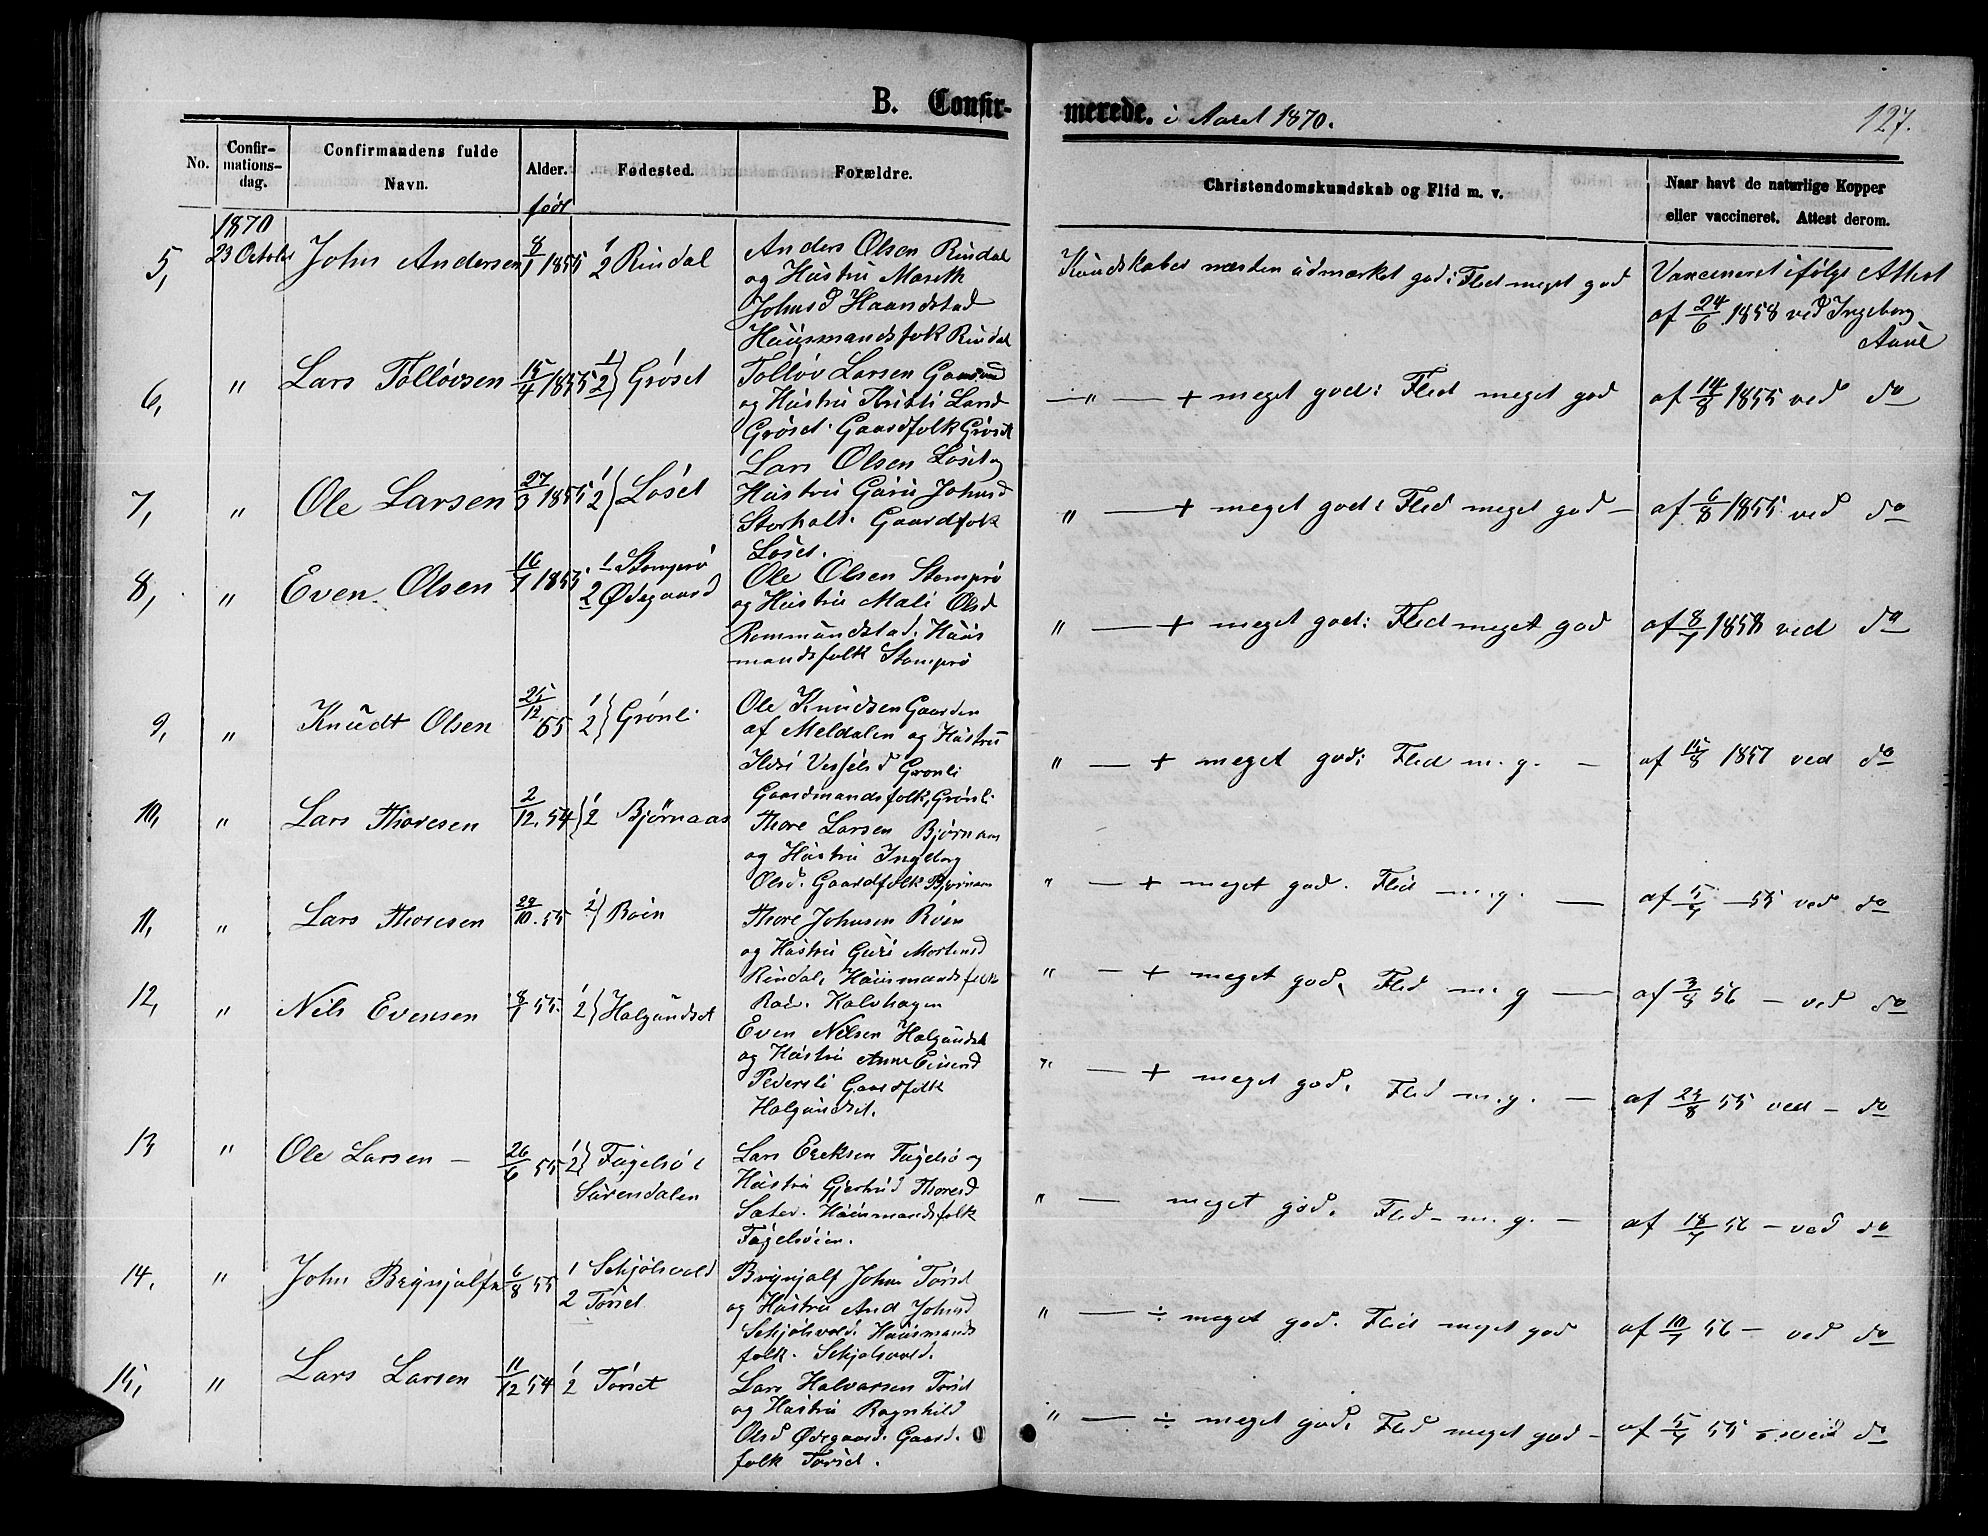 B. Confir-
merede. i Aaret 1870.
127.
No.
Confir-
mations-
dag.
Confirmandens fulde
Navn.
Alder.
født
Fødested.
Forældre.
Christendomskundskab og Flid m. v.
Naar havt de naturlige Kopper
eller vaccineret. Attest derom.
1870
5, 23 October John Andersen 8/1 1855 1 2 Rindal
Anders Olsen Rindal
og Hustru Marith
Johnsd Haandstad
Huusmandsfolk Rindal
Kundskaber næsten udmærket god: Flid meget god
Vaccineret ifølge Attest
af 24/6 1858 ved Ingeborg
Aune
6, " Lars Tølløvsen 15/4 1855 1 2 } Grøset
Tølløv Larsen
og Hustru Larsd
Grøset. Gaardfolk Grøset
—"— + meget god: Flid meget god
af 14/8 1855 ved do
7, " Ole Larsen 27/3 1855 1 2 } Løset
Lars Olsen Løset og
Hustru Guru Johnsd
Storholt. Gaardfolk
Løset.
" — + meget god: Flid meget god —
af 6/8 1855 ved do
8, " Even Olsen 16/7 1855 1 Stomprø
2 Ødegaard
Ole Olsen Stomprø
og Hustru Mali Olsd
Rommundstad. Huus
mandsfolk Stomprø
" — + meget god: Flid meget god
af 8/7 1858 ved do
9, " Knudt Olsen 25/12 55 1 2 } Grønli
Ole Knudsen Gaarden
af Meldalen og Hustru
Grønli
Gaardmandsfolk, Grønli
" — + meget god: Flid m. g. —
af 15/8 1857 ved do
10, " Lars Thoresen 2/12. 54 } 1 2 Bjørnaas
Thore Larsen Bjørnaas
og Hustru Ingeborg
Olsd. Gaardfolk Bjørnaas
" — + meget god. Flid m. g. —
af 5/7 — 55 ved do
11, " Lars Thoresen 29/10. 55 1 2 } Røen
Thore Johnsen Røen
og Hustru Guri Mortensd
Rindal, Huusmandsfolk
Kalvhagen
" — + meget god, Flid m. g —
af 3/8 56 — ved do
12, " Nils Evensen 8/7 55. 1 2 } Halgundset
Even Nilsen Halgundset
og Hustru Anne Einersd
Pedersli Gaardfolk
Halgundset.
" — + meget god. Flid m. g. —
af 29/8 55 ved — do
13 " Ole Larsen — 26/6 55 1 2 } Fugelsø i
Surendalen
Lars Ericksen Fugelsø og
Hustru Gjertrud Thoresd
Sæter. Huusmandsfolk
Fugelsøien.
" — meget god. Flid — m. g. —
af 18/7 56 — ved do
14, " John Brynjulfsn 6/8 55 1 Schjølsvold
2 Tørset
Brynjulf Johns Tørset
og Hustru And Johnsd
Schjølsvold. Huusmands
folk. Schjølsvold.
" — ÷ meget god. Flid meget god
af 10/7 56 — ved do
15, " Lars Larsen 11/12 54 1 2 Tørset
Lars Halvarsen Tørset
og Hustru Ragnhild
Olsd Ødegaard. Gaard-
folk Tørset.
" — ÷ meget god. Flid meget god —
af 5/7 55 — ved do